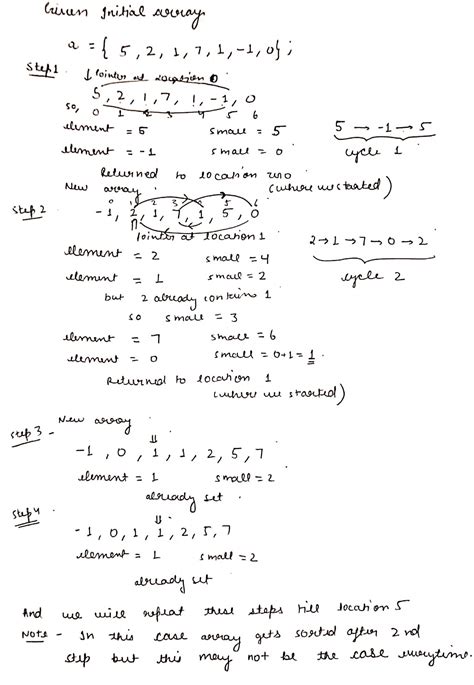 Given Initial array
a = { 5, 2, 1, 7, 1, -1, 0};
Step1 ↓ Pointer at location 0
5, 2, 1, 7, 1, -1, 0
so, 0 1 2 3 4 5 6
element = 5 small = 5 5 → -1 → 5
element = -1 small = 0 cycle 1
Returned to location zero
(where we started)
New array
0 1 2 3 5 6
Step 2 -1, 2, 1, 7, 1, 5, 0
pointer at location 1
element = 2 small = 4 2→1→7→0→2
element = 1 small = 2 cycle 2
but 2 already contains 1
so small = 3
element = 7 small = 6
element = 0 small = 0+1 = 1
Returned to location 1
(where we started)
Step 3 - New array
-1, 0, 1, 1, 2, 5, 7
element = 1 small = 2
already set.
Step 4
-1, 0, 1, 1, 2, 5, 7
element = 1 small = 2
already set
And we will repeat these steps till location 5
Note - In this case array gets sorted after 2nd
step but this may not be the case everytime.